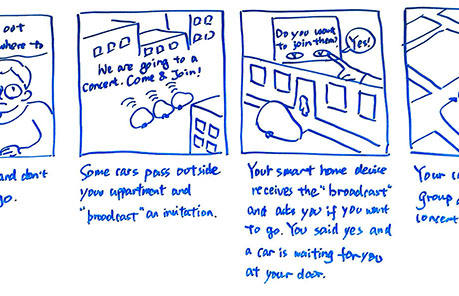 out
where to
and don't
go.
We are going to a
concert. Come & Join!
Some cars pass outside
your appartment and
"broadcast" an invitation.
Do you want
to join them?
Yes!
Your smart home device
receives the "broadcast"
and asks you if you want
to go. You said yes and
a car is waiting for you
at your door.
Your c
group
concert